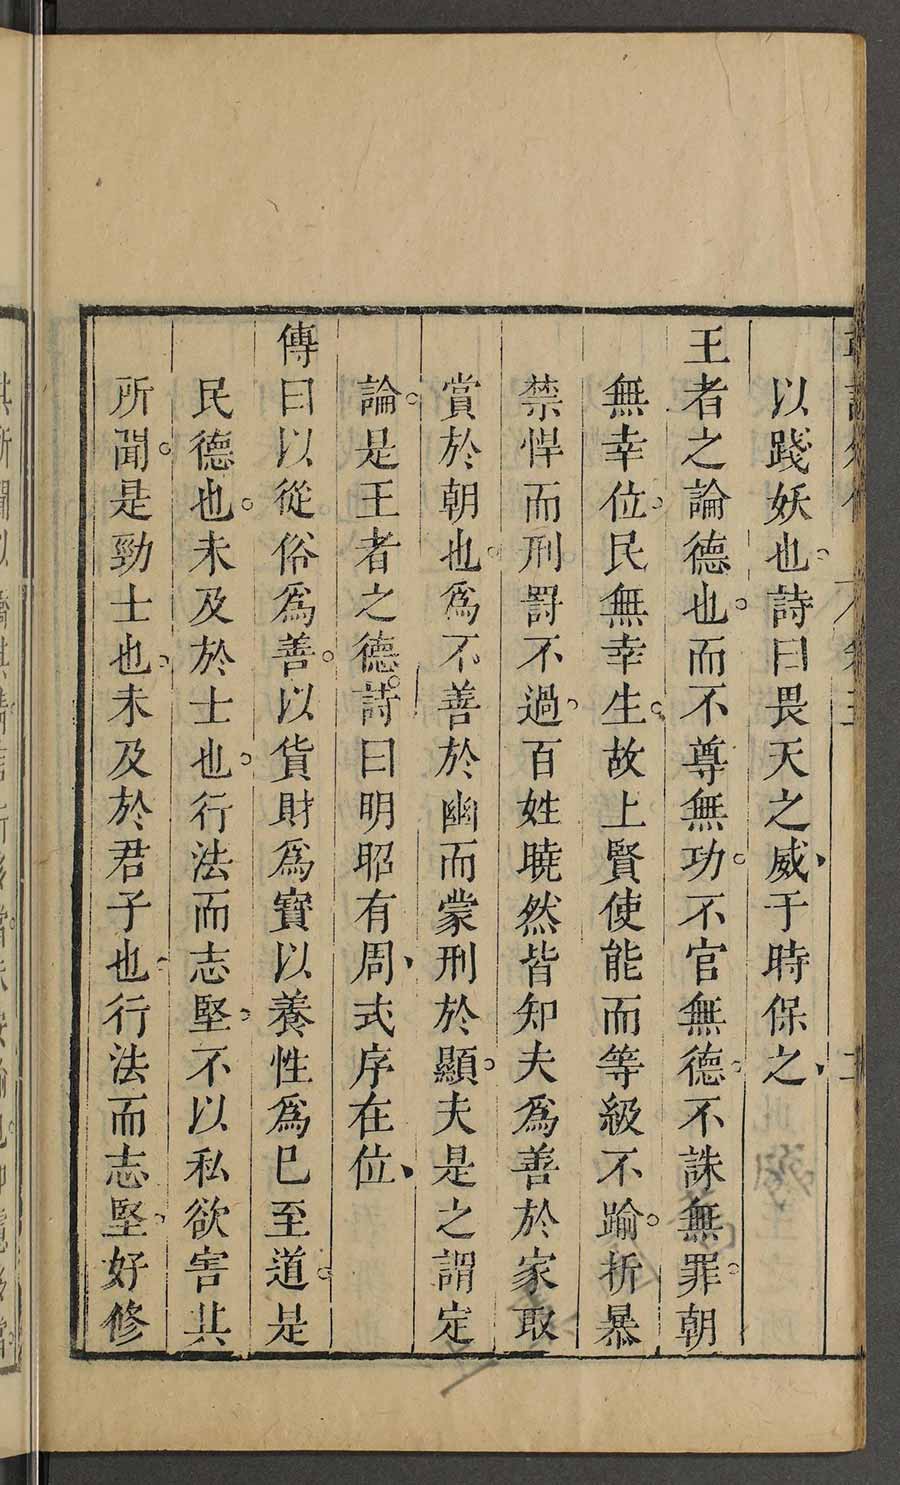 以踐妖也。詩曰畏天之威、于時保之、
王者之論德也。而不尊無功。不官無德。不誅無罪。朝
無幸位。民無幸生。故上賢使能而等級不踰。折暴
禁悍而刑罰不過。百姓曉然皆知夫爲善於家取
賞於朝也。爲不善於幽而蒙刑於顯。夫是之謂定
論。是王者之德。詩曰明昭有周、式序在位、
傳曰以從俗爲善。以貨財爲寶以養性爲已至道。是
民德也。未及於士也。行法而志堅。不以私欲害其
所聞。是勁士也。未及於君子也。行法而志堅。好修